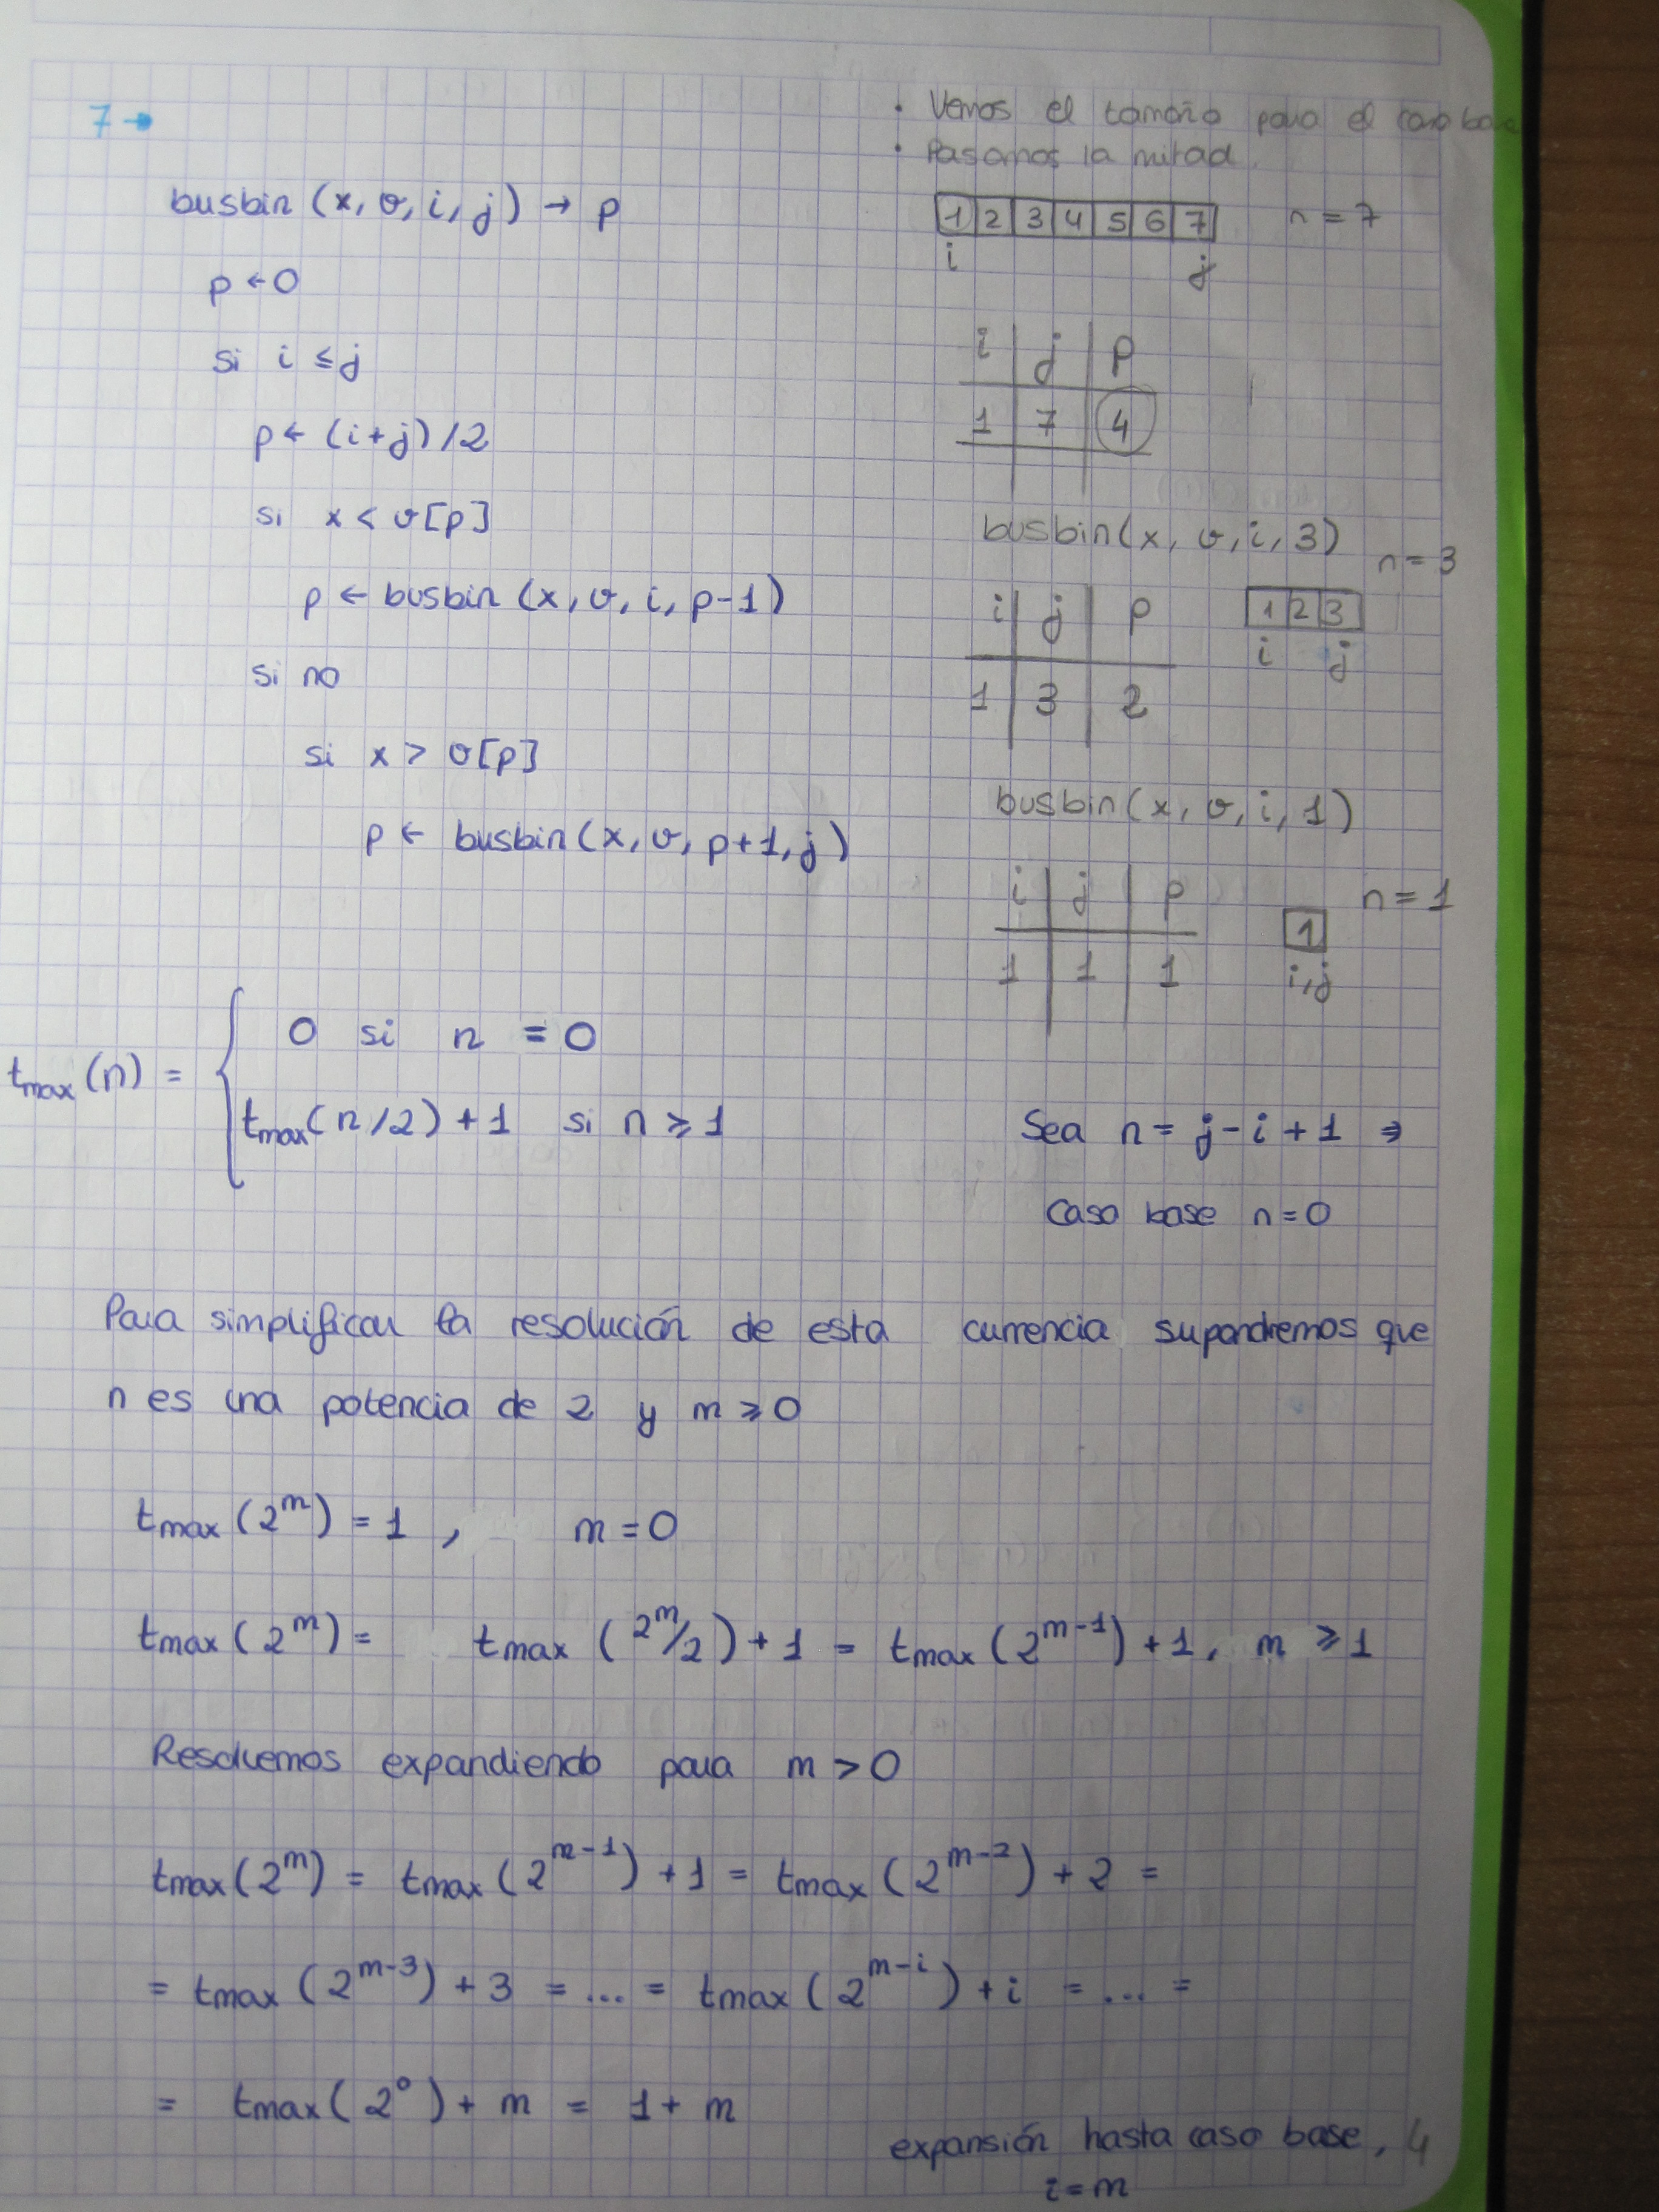 7→
busbin (x, v, i, j) → p
p ← 0
si i ≤ j
p ← (i+j) /2
si x < v[p]
p ← busbin (x, v, i, p-1)
si no
si x > v[p]
p ← busbin (x, v, p+1, j)
• Vemos el tamaño para el caso base
• Pasamos la mitad.
1 2 3 4 5 6 7 n = 7
i j
i j p
1 7 4
busbin(x, v, i, 3)
n = 3
i j p 1 2 3
i j
1 3 2
busbin(x, v, i, 1)
i j p n = 1
1
1 1 1 i,j
0 si n = 0
tmax (n) =
tmax( n/2) + 1 si n ≥ 1
Sea n = j - i + 1 ⇒
Caso base n = 0
Para simplificar la resolución de esta currencia supondremos que
n es una potencia de 2 y m ≥ 0
tmax (2^m) = 1 , m = 0
tmax (2^m) = tmax (2^m/2) + 1 = tmax (2^m-1) + 1, m ≥ 1
Resolvemos expandiendo para m > 0
tmax (2^m) = tmax (2^m-1) + 1 = tmax (2^m-2) + 2 =
= tmax (2^m-3) + 3 = ... = tmax (2^m-i) + i = ... =
= tmax (2^0) + m = 1 + m
expansión hasta caso base, 4
i = m